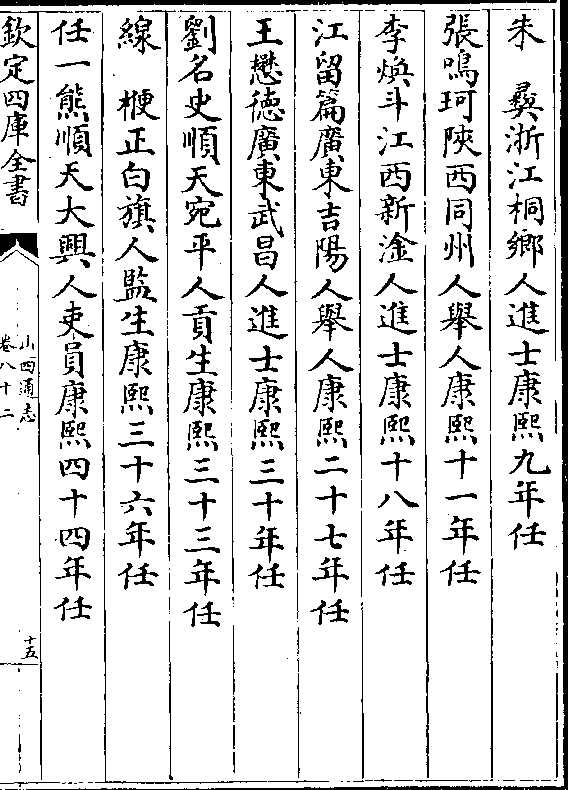 朱　彛浙江桐鄉人進士康熙九年任
張鳴珂陜西同州人舉人康熙十一年任
李焕斗江西新淦人進士康熙十八年任
江留篇廣東吉陽人舉人康熙二十七年任
王懋徳廣東武昌人進士康熙三十年任
劉名史順天宛平人貢生康熙三十三年任
線　㮌正白旗人監生康熙三十六年任
任一熊順天大興人吏員康熙四十四年任
欽定四庫全書
山西通志
卷八十二
十五